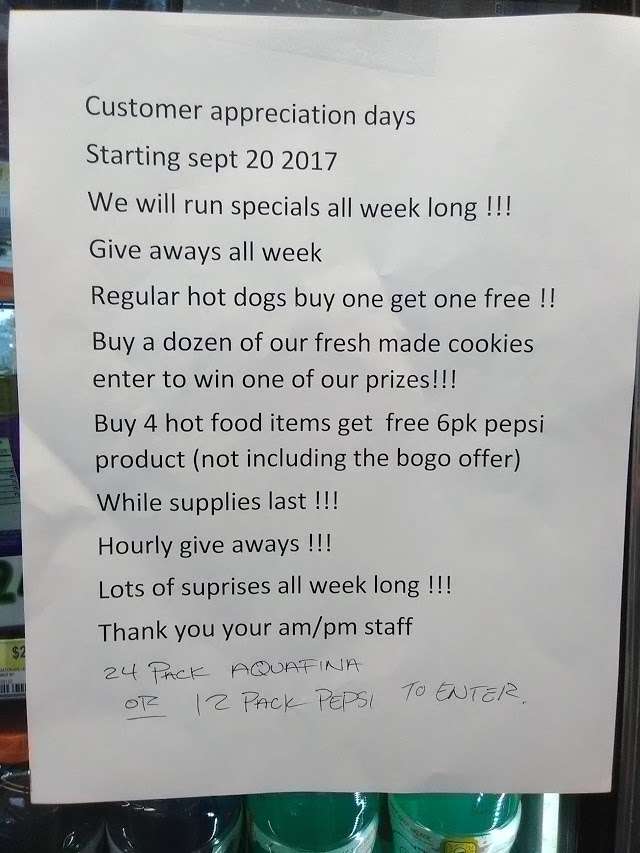 Customer appreciation days
Starting sept 20 2017
We will run specials all week long !!!
Give aways all week
Regular hot dogs buy one get one free !!
Buy a dozen of our fresh made cookies
enter to win one of our prizes!!!
Buy 4 hot food items get free 6pk pepsi
product (not including the bogo offer)
While supplies last !!!
Hourly give aways !!!
Lots of suprises all week long !!!
Thank you your am/pm staff
24 PACK AQUAFINA
OR 12 PACK PEPSI TO ENTER.
$2